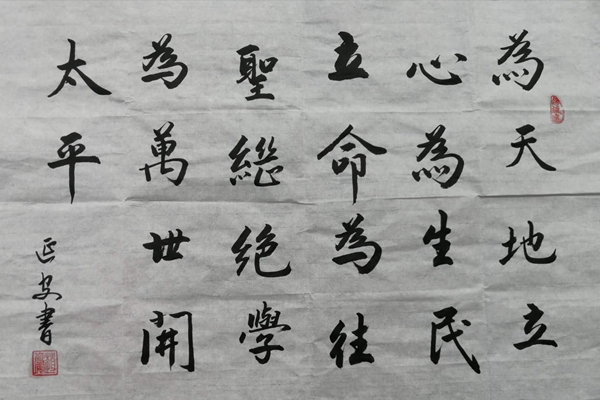 為天地立
心為生民
立命為往
聖繼絕學
為萬世開
太平
書